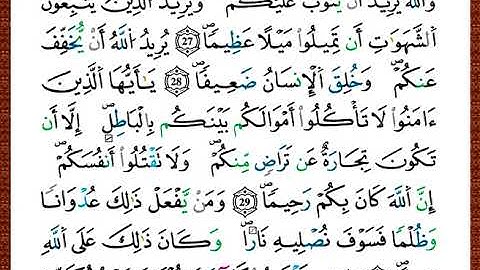 وَاللَّهُ يُرِيدُ أَن يَتُوبَ عَلَيْكُمْ وَيُرِيدُ الَّذِينَ يَتَّبِعُونَ
الشَّهَوَاتِ أَن تَمِيلُوا مَيْلًا عَظِيمًا ۝27 يُرِيدُ اللَّهُ أَن يُخَفِّفَ
عَنكُمْ وَخُلِقَ الْإِنسَانُ ضَعِيفًا ۝28 يَا أَيُّهَا الَّذِينَ
ءَامَنُوا لَا تَأْكُلُوا أَمْوَالَكُم بَيْنَكُم بِالْبَاطِلِ إِلَّا أَن
تَكُونَ تِجَارَةً عَن تَرَاضٍ مِّنكُمْ وَلَا تَقْتُلُوا أَنفُسَكُمْ
إِنَّ اللَّهَ كَانَ بِكُمْ رَحِيمًا ۝29 وَمَن يَفْعَلْ ذَلِكَ عُدْوَانًا
وَظُلْمًا فَسَوْفَ نُصْلِيهِ نَارًا وَكَانَ ذَلِكَ عَلَى اللَّهِ